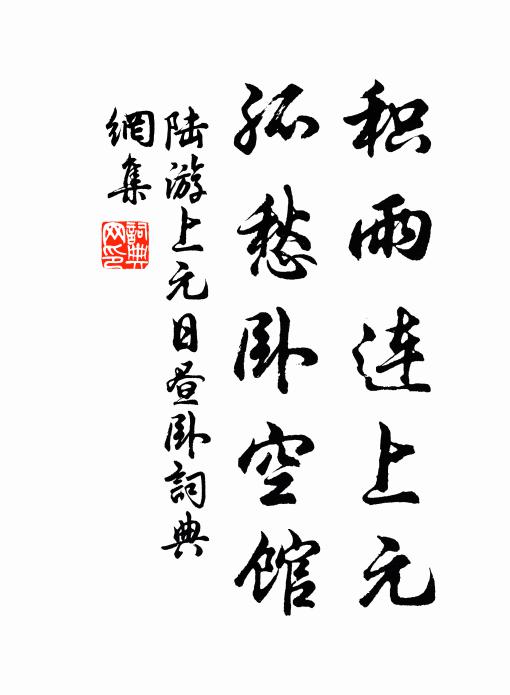 积雨连上元
孤愁卧空馆
陆游上元日昼卧詞典
網集
詞典网印